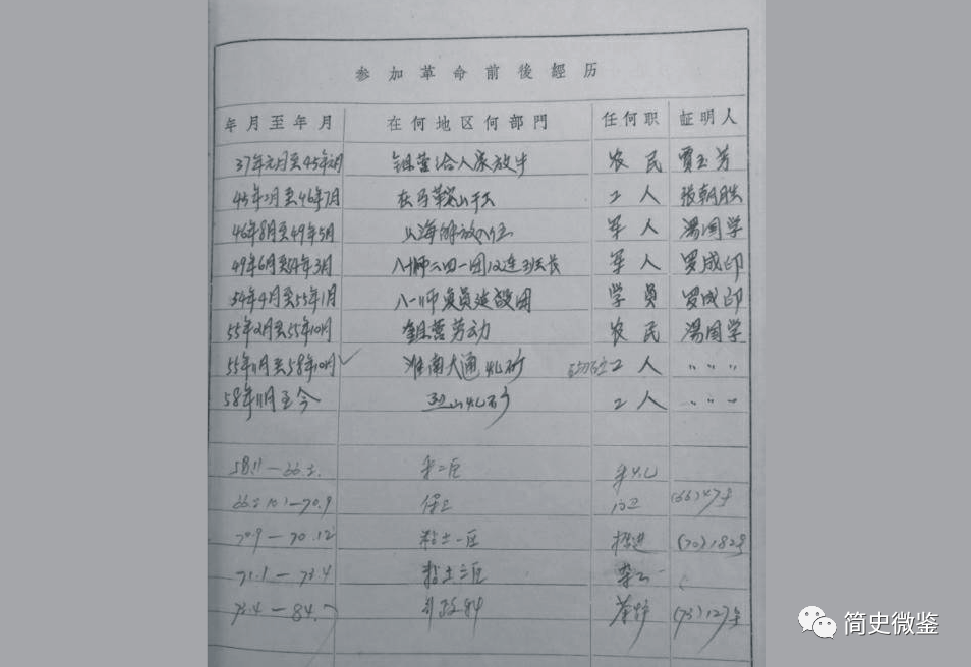 参加革命前後經历
年月至年月 在何地区何部門 任何职 証明人
37年元月至45年 营给人家放牛 农民 贾玉芳
45年2月至46年7月 在马鞍山 工人 張朝胜
46年8月至49年5月 上海解放 军人 湯国学
49年6月至54年3月 八一师二四一团12连班长 军人 罗成印
54年4月至55年1月 八一师复员建設团 学員 罗成印
55年2月至55年10月 营劳动 农民 湯国学
55年11月至58年10月 ✓ 淮南大通 矿 工人 〃 〃 〃
58年11月至今 烈山 矿 工人 〃 〃 〃
58.11 — 66. 采二区 采
66. — 70.9 保卫 门卫 (66)47号
70.9 — 70.12 粘土一区 掘进 (70)182号
71.1 — 73.4 粘土三区 杂工
73.4 — 84. 行政科 茶炉 (73)127号
简史微鉴